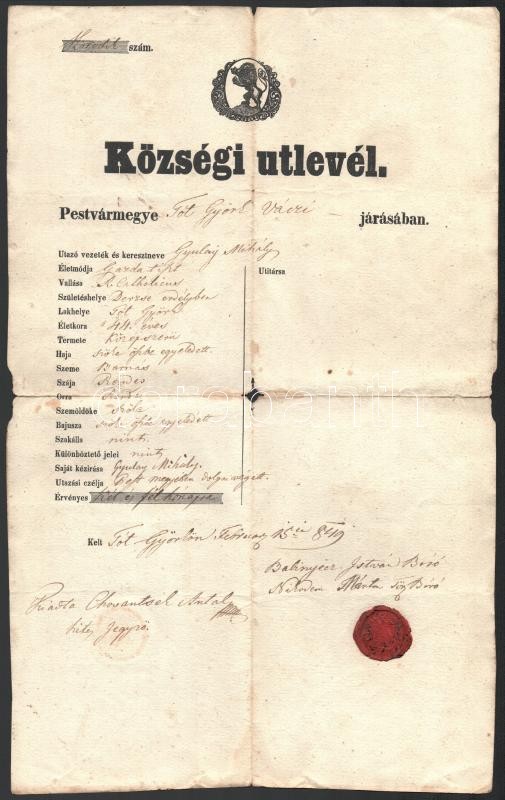 szám.
Községi utlevél.
Pestvármegye Tót Györk Váczi járásában.
Utazó vezeték és keresztneve Gyulay Mihály
Életmódja Gazda tiszt
Utitársa
Vallása R. Catholicus
Születéshelye Derzse erdélyben
Lakhelye Tót Györk
Életkora 44. éves
Termete Középszerü
Haja szöke öszbe egyeledett.
Szeme Barnás
Szája Rendes
Orra
Szemöldöke szöke
Bajusza szöke öszbe egyeledett
Szakálla nints.
Különböztető jelei nints
Saját kézirása Gyulay Mihály.
Utazási czélja Pest megyében dolga végett.
Érvényes Két és fél hónapra
Kelt Tót Györkön Február 15én 849
Balinyecz István Biró
Márton Biró
Kiadta Chovantsek Antal
hites Jegyző.